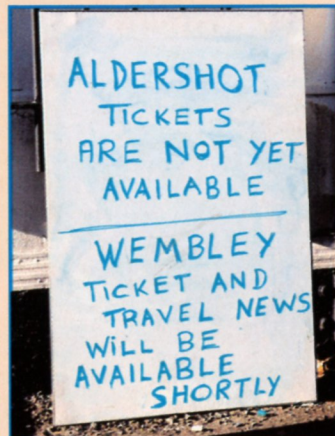 ALDERSHOT
TICKETS
ARE NOT YET
AVAILABLE
WEMBLEY
TICKET AND
TRAVEL NEWS
WILL BE
AVAILABLE
SHORTLY